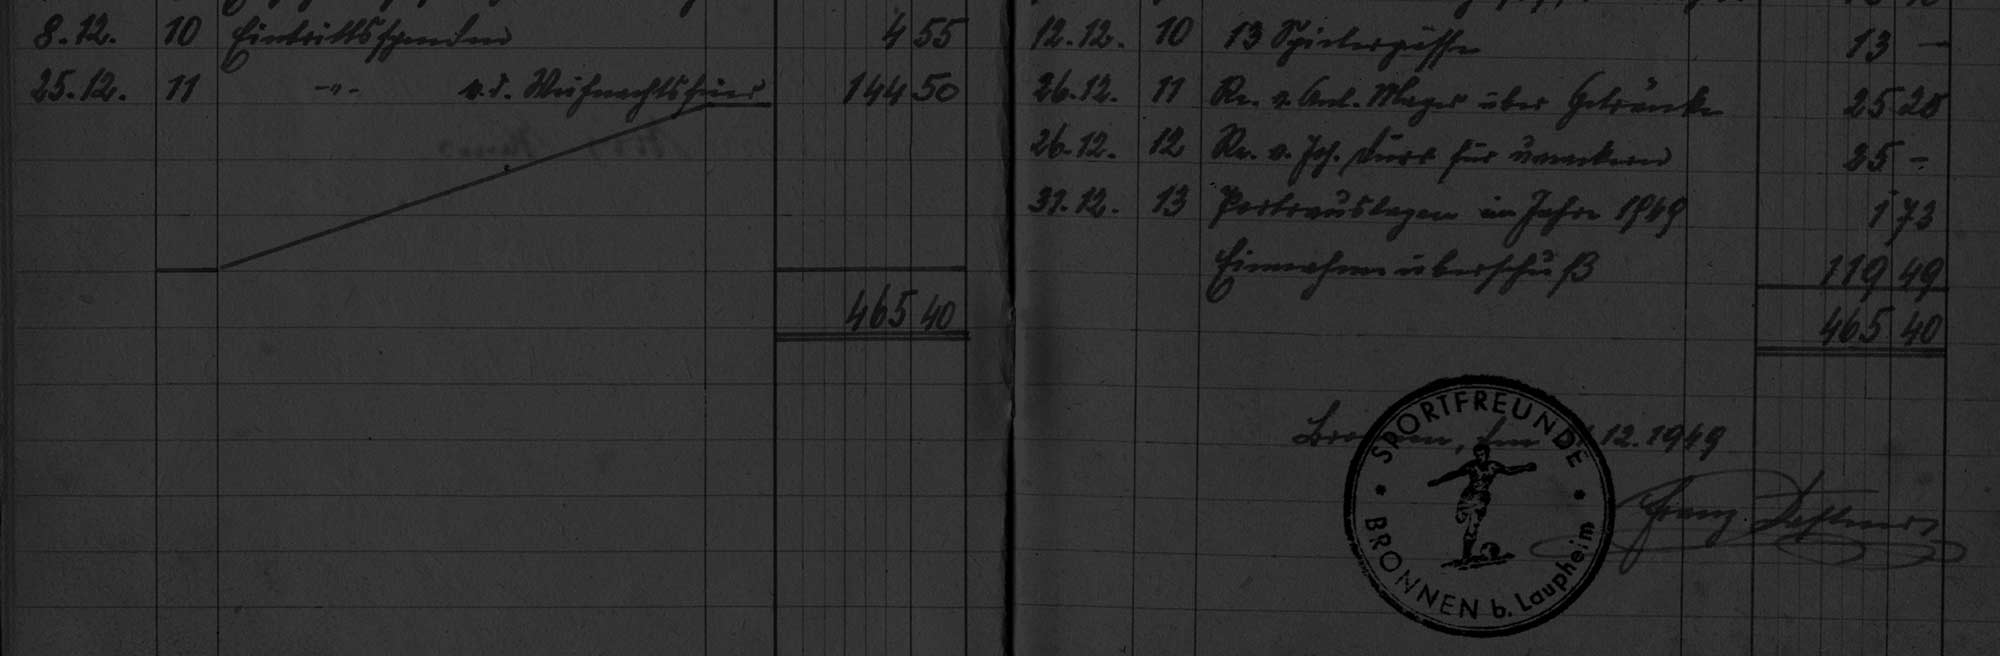 8.12. 10 Eintrittsspenden 4 55
25.12. 11 -"- v.d. Weihnachtsfeier 144 50
465 40
12.12. 10 13 Spielerpässe 13 —
26.12. 11 Re. v. Ant. über Getränke 25 20
26.12. 12 Re. v. Joh. für 25 -
31.12. 13 Portoauslagen im Jahre 1949 1 73
Einnahmeüberschuß 119 49
465 40
Bronnen, den 12.1949
SPORTFREUNDE
BRONNEN b. Laupheim
Franz